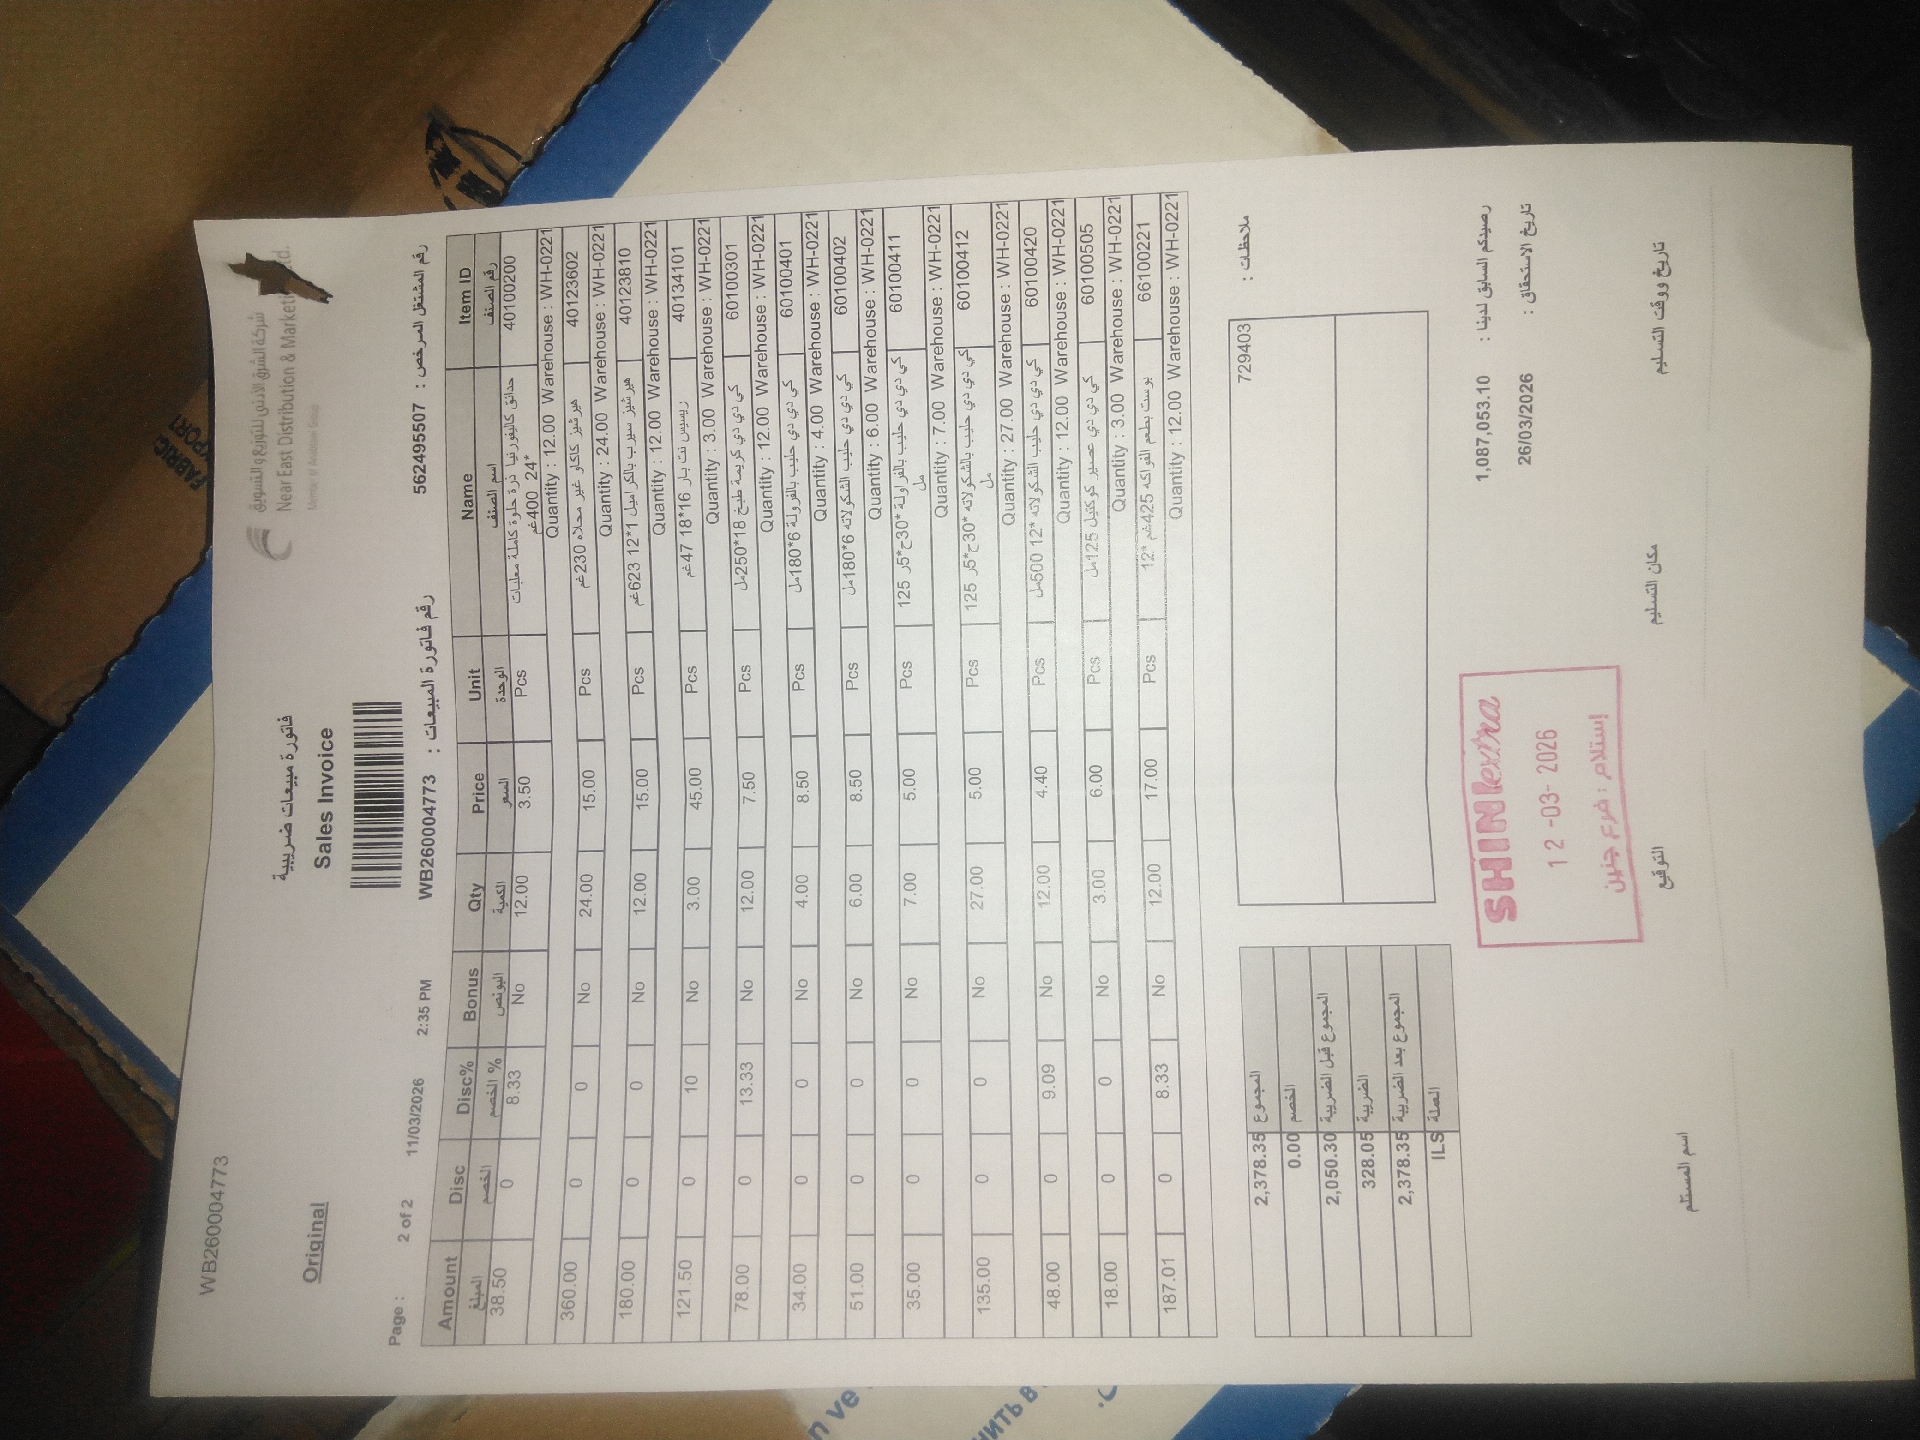 WB2600004773
شركة الشرق الأدنى للتوزيع والتسويق
Near East Distribution & Marketi td.
Original
فاتورة مبيعات ضريبية
Sales Invoice
Page : 2 of 2 11/03/2026 2:35 PM WB2600004773 : رقم فاتورة المبيعات 562495507 : رقم المشتغل المرخص
Amount Disc Disc% Bonus Qty Price Unit Name Item ID
المبلغ الخصم الخصم % البونص الكمية السعر الوحدة اسم الصنف رقم الصنف
38.50 0 8.33 No 12.00 3.50 Pcs حدائق كاليفورنيا ذرة حلوة كاملة معلبات 40100200
400غم 24*
Quantity : 12.00 Warehouse : WH-0221
360.00 0 0 No 24.00 15.00 Pcs هيرشيز كاكاو غير محلاه 230غم 40123602
Quantity : 24.00 Warehouse : WH-0221
180.00 0 0 No 12.00 15.00 Pcs هيرشيز سيرب بالكراميل 1*12 623غم 40123810
Quantity : 12.00 Warehouse : WH-0221
121.50 0 10 No 3.00 45.00 Pcs ريسيس نت بار 16*18 47غم 40134101
Quantity : 3.00 Warehouse : WH-0221
78.00 0 13.33 No 12.00 7.50 Pcs كي دي دي كريمة طبخ 18*250مل 60100301
Quantity : 12.00 Warehouse : WH-0221
34.00 0 0 No 4.00 8.50 Pcs كي دي دي حليب بالفرولة 6*180مل 60100401
Quantity : 4.00 Warehouse : WH-0221
51.00 0 0 No 6.00 8.50 Pcs كي دي دي حليب الشكولاته 6*180مل 60100402
Quantity : 6.00 Warehouse : WH-0221
35.00 0 0 No 7.00 5.00 Pcs كي دي دي حليب بالفراولة *30ح*5ر 125 60100411
مل
Quantity : 7.00 Warehouse : WH-0221
135.00 0 0 No 27.00 5.00 Pcs كي دي دي حليب بالشكولاته *30ح*5ر 125 60100412
مل
Quantity : 27.00 Warehouse : WH-0221
48.00 0 9.09 No 12.00 4.40 Pcs كي دي دي حليب الشكولاته *12 500مل 60100420
Quantity : 12.00 Warehouse : WH-0221
18.00 0 0 No 3.00 6.00 Pcs كي دي دي عصير كوكتيل 125مل 60100505
Quantity : 3.00 Warehouse : WH-0221
187.01 0 8.33 No 12.00 17.00 Pcs بوست بطعم الفواكه 425غم *12 66100221
Quantity : 12.00 Warehouse : WH-0221
2,378.35 المجموع
0.00 الخصم
2,050.30 المجموع قبل الضريبة
328.05 الضريبة
2,378.35 المجموع بعد الضريبة
ILS العملة
729403
ملاحظات :
1,087,053.10 : رصيدكم السابق لدينا
26/03/2026 : تاريخ الاستحقاق
SHINIextra
12 -03- 2026
إستلام : فرع جنين
اسم المستلم التوقيع مكان التسليم تاريخ ووقت التسليم
FABRIC